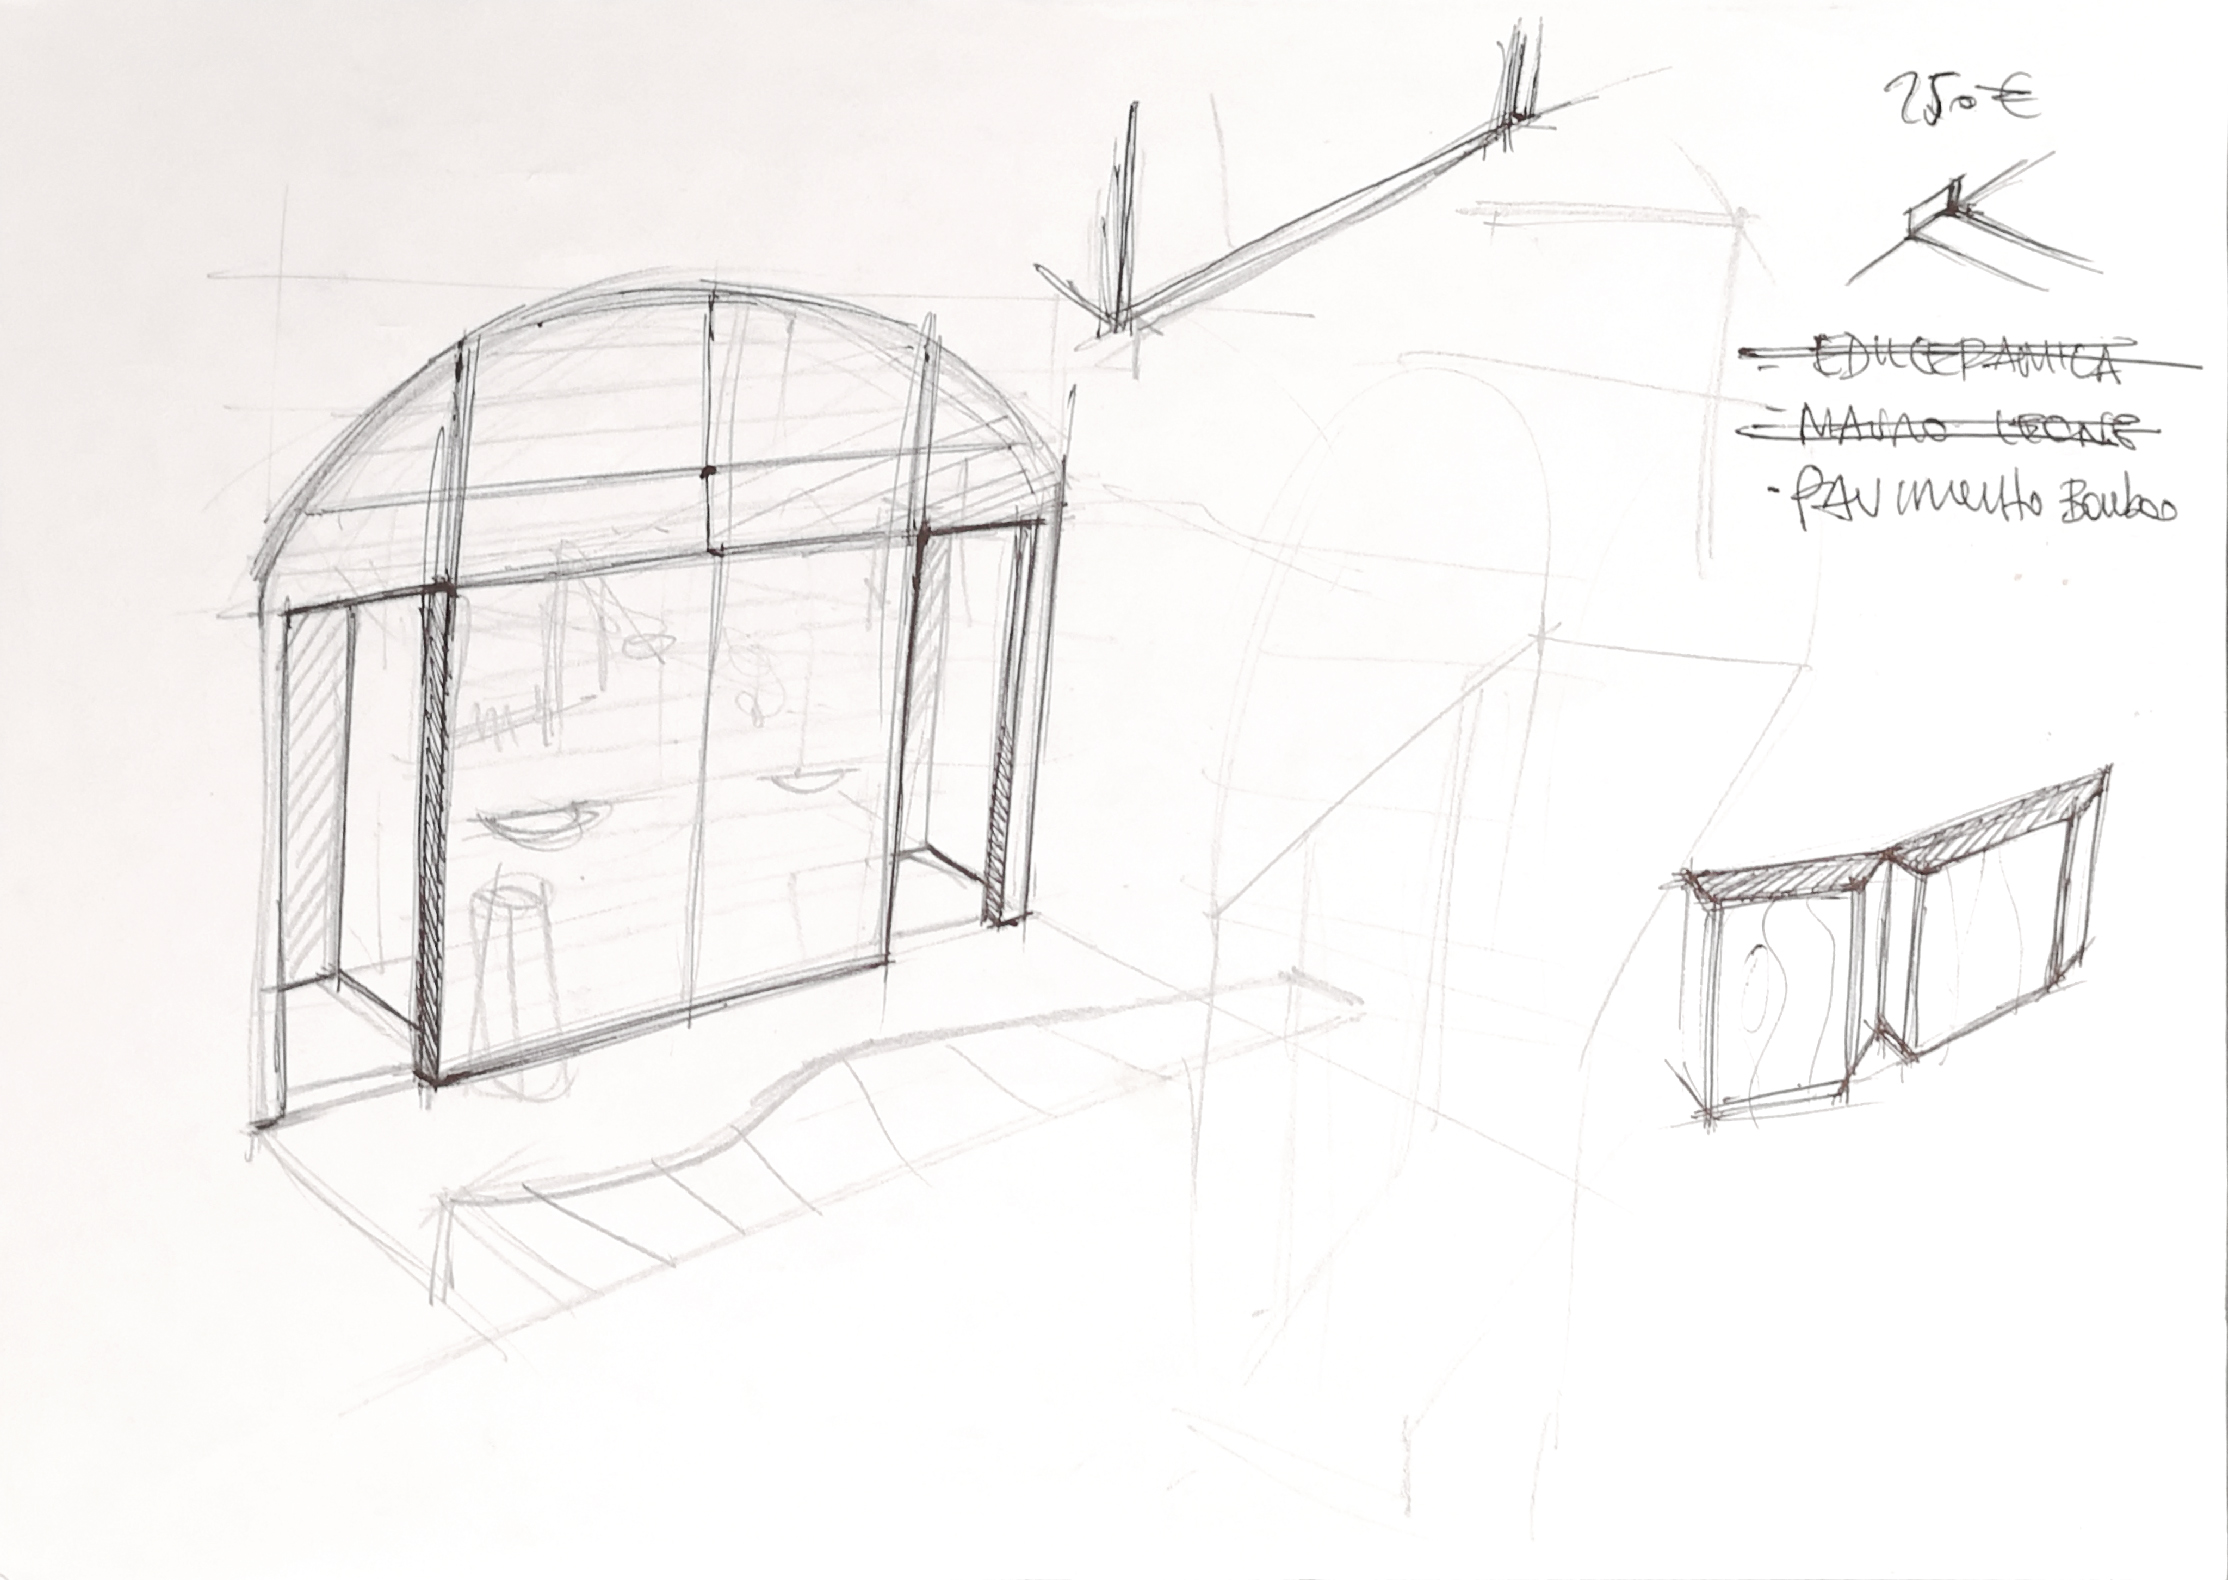 250€
- EDILCERAMICA
- MAURO LEONE
- PAVIMENTO BAMBOO